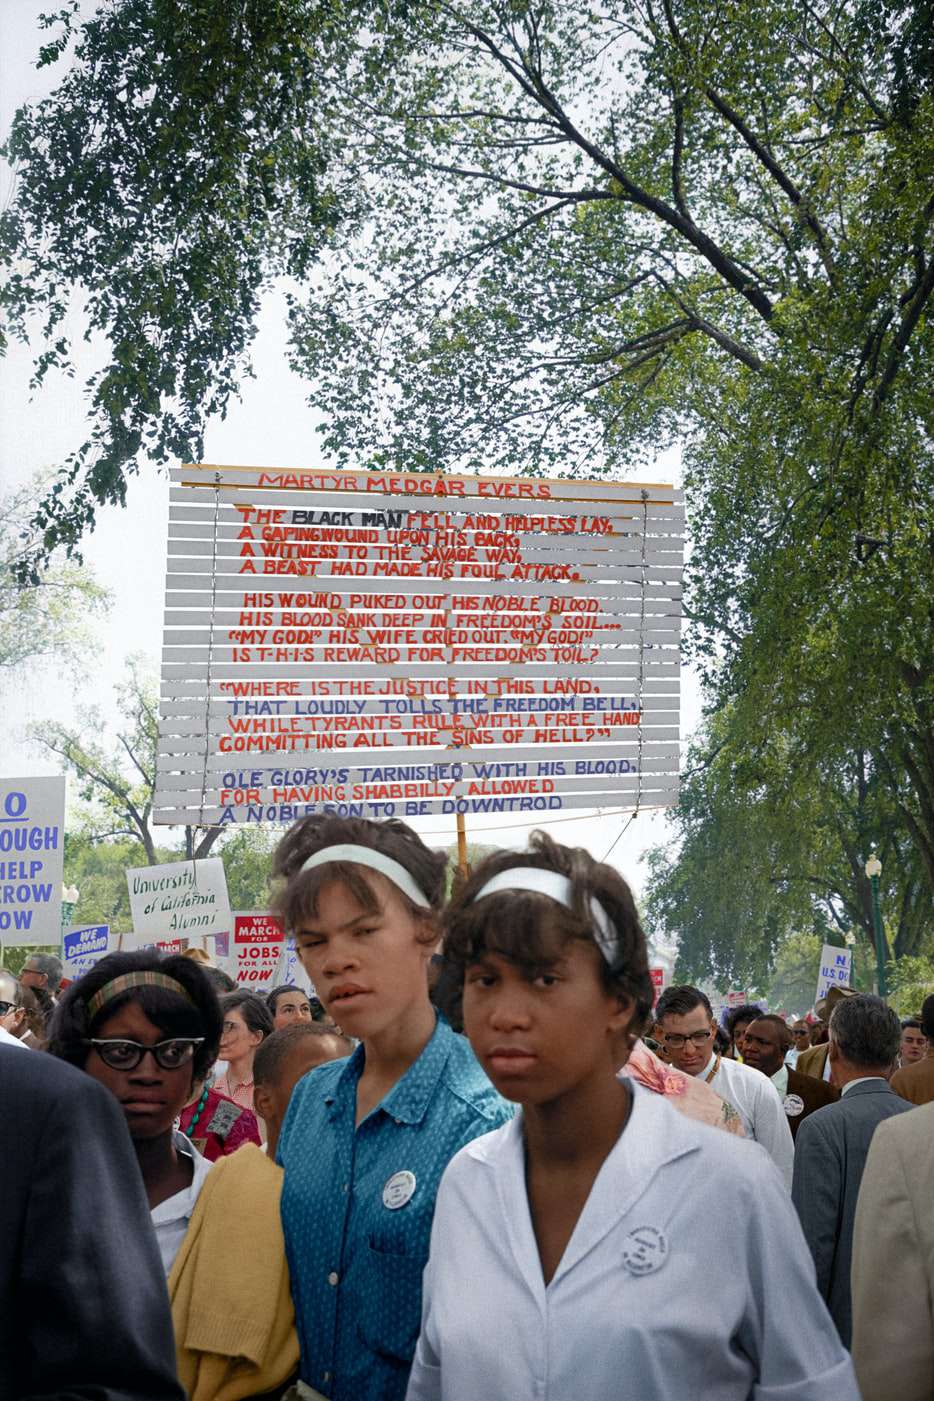 MARTYR MEDGAR EVERS
THE BLACK MAN FELL AND HELPLESS LAY,
A GAPING WOUND UPON HIS BACK,
A WITNESS TO THE SAVAGE WAY,
A BEAST HAD MADE HIS FOUL ATTACK.
HIS WOUND PUKED OUT HIS NOBLE BLOOD.
HIS BLOOD SANK DEEP IN FREEDOM'S SOIL...
"MY GOD!" HIS WIFE CRIED OUT. "MY GOD!"
IS T-H-I-S REWARD FOR FREEDOM'S TOIL?
"WHERE IS THE JUSTICE IN THIS LAND,
THAT LOUDLY TOLLS THE FREEDOM BELL,
WHILE TYRANTS RULE WITH A FREE HAND
COMMITTING ALL THE SINS OF HELL?"
OLE GLORY'S TARNISHED WITH HIS BLOOD,
FOR HAVING SHABBILY ALLOWED
A NOBLE SON TO BE DOWNTROD
O
OUGH
HELP
CROW
OW
University
of California
Alumni
WE
DEMAND
AN
WE
MARCH
FOR
JOBS
FOR ALL
NOW
MARCH
N
U.S. DO